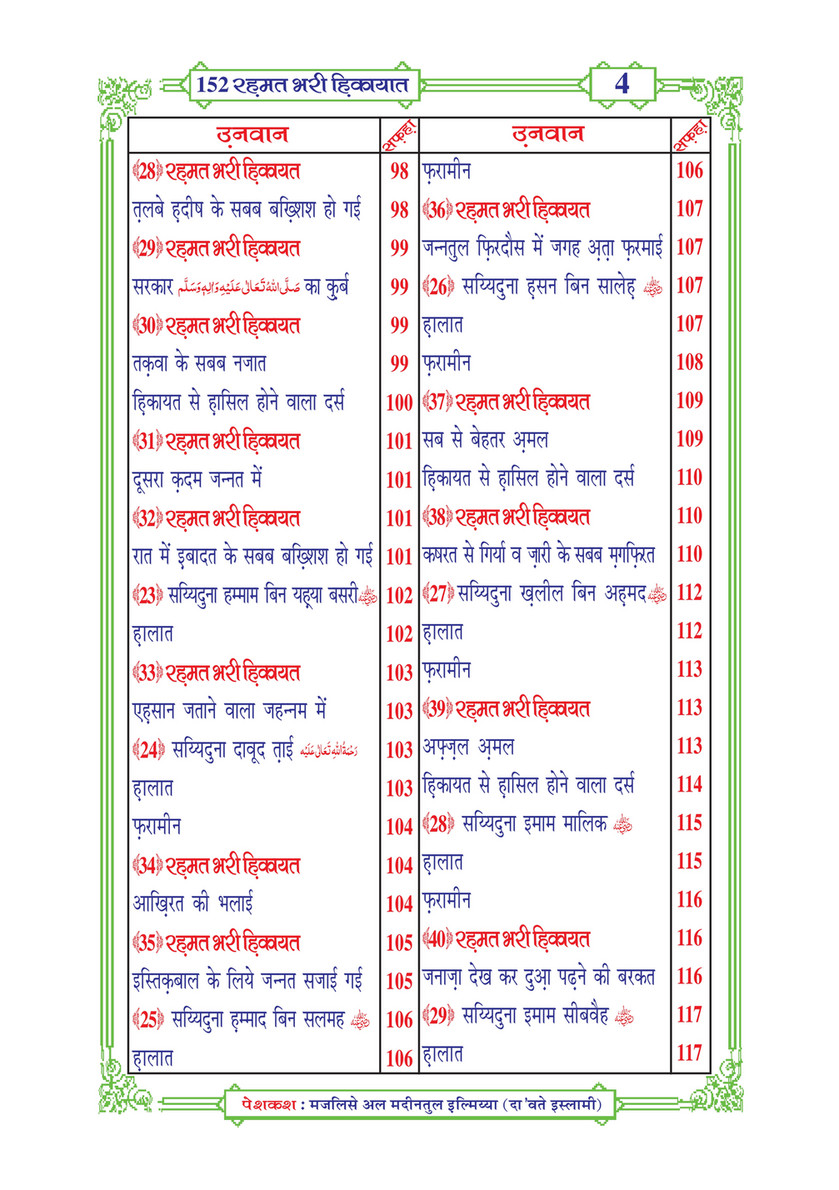 152 रह़मत भरी ह़िकायात
4
उ़नवान सफ़ह़ा
﴾28﴿ रह़मत भरी ह़िकायत 98
त़लबे ह़दीष के सबब बख़्शिश हो गई 98
﴾29﴿ रह़मत भरी ह़िकायत 99
सरकार صَلَّى اللهُ تَعَالٰى عَلَيْهِ وَاٰلِهٖ وَسَلَّم का क़ुर्ब 99
﴾30﴿ रह़मत भरी ह़िकायत 99
तक़वा के सबब नजात 99
ह़िकायत से ह़ासिल होने वाला दर्स 100
﴾31﴿ रह़मत भरी ह़िकायत 101
दूसरा क़दम जन्नत में 101
﴾32﴿ रह़मत भरी ह़िकायत 101
रात में इ़बादत के सबब बख़्शिश हो गई 101
﴾23﴿ सय्यिदुना हम्माम बिन यह़्या बसरी 102
ह़ालात 102
﴾33﴿ रह़मत भरी ह़िकायत 103
एह़सान जताने वाला जहन्नम में 103
﴾24﴿ सय्यिदुना दावूद त़ाई رَحْمَةُ اللهِ تَعَالٰى عَلَيْه 103
ह़ालात 103
फ़रामीन 104
﴾34﴿ रह़मत भरी ह़िकायत 104
आख़िरत की भलाई 104
﴾35﴿ रह़मत भरी ह़िकायत 105
इस्तिक़बाल के लिये जन्नत सजाई गई 105
﴾25﴿ सय्यिदुना ह़म्माद बिन सलमह 106
ह़ालात 106
उ़नवान सफ़ह़ा
फ़रामीन 106
﴾36﴿ रह़मत भरी ह़िकायत 107
जन्नतुल फ़िरदौस में जगह अ़त़ा फ़रमाई 107
﴾26﴿ सय्यिदुना ह़सन बिन सालेह़ 107
ह़ालात 107
फ़रामीन 108
﴾37﴿ रह़मत भरी ह़िकायत 109
सब से बेहतर अ़मल 109
ह़िकायत से ह़ासिल होने वाला दर्स 110
﴾38﴿ रह़मत भरी ह़िकायत 110
कषरत से गिर्या व ज़ारी के सबब मग़फ़िरत 110
﴾27﴿ सय्यिदुना ख़लील बिन अह़मद 112
ह़ालात 112
फ़रामीन 113
﴾39﴿ रह़मत भरी ह़िकायत 113
अफ़्ज़ल अ़मल 113
ह़िकायत से ह़ासिल होने वाला दर्स 114
﴾28﴿ सय्यिदुना इमाम मालिक 115
ह़ालात 115
फ़रामीन 116
﴾40﴿ रह़मत भरी ह़िकायत 116
जनाज़ा देख कर दुआ़ पढ़ने की बरकत 116
﴾29﴿ सय्यिदुना इमाम सीबवैह 117
ह़ालात 117
पेशकश : मजलिसे अल मदीनतुल इल्मिय्या (दा'वते इस्लामी)